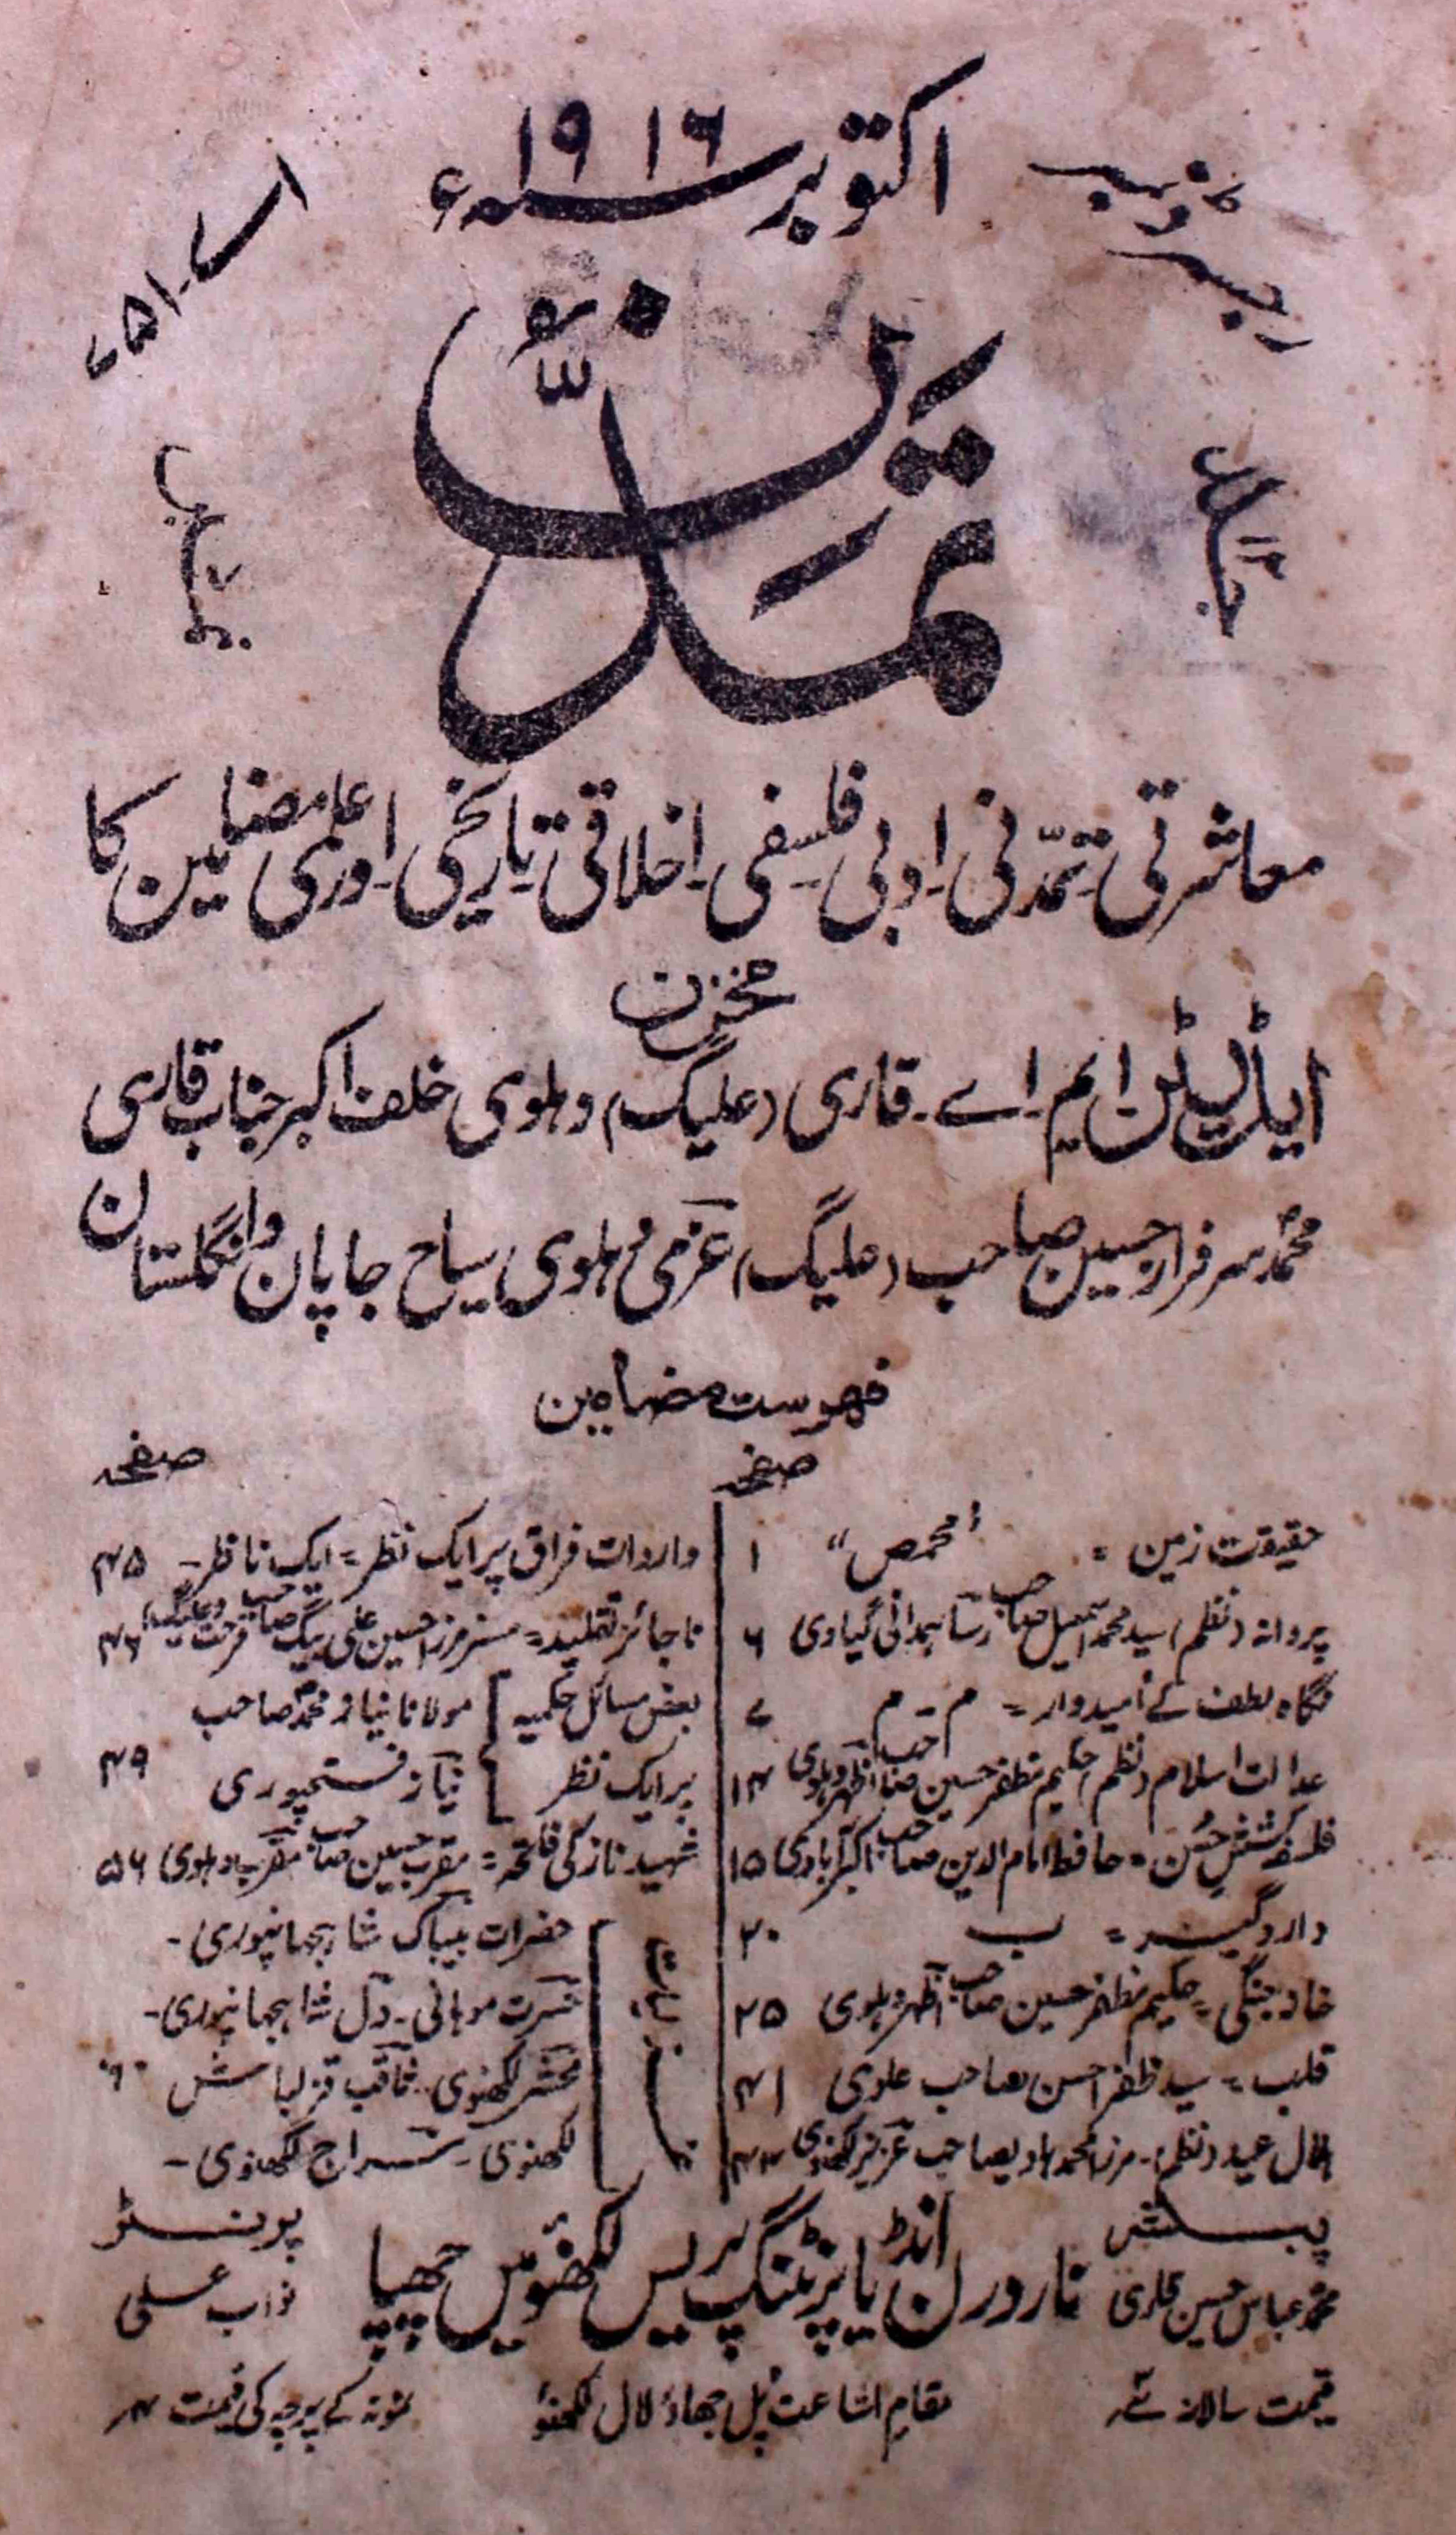 اکتوبر ۱۹۱۶ء
رجسٹرڈ نمبر
اے۔۷۵۱
تمدّن
معاشرتی۔تمدّنی۔ادبی۔فلسفی۔اخلاقی۔تاریخی۔اور علمی مضامین کا
مخزن
ایڈیٹر۔ایم۔اے۔قاری (علیگ) دہلوی خلف اکبر جناب قاری
محمد سرفراز حسین صاحب (علیگ) عزمی دہلوی سیاح جاپان و انگلستان
فہرست مضامین
صفحہ
حقیقت زمین = "محمص" ۱
پروانہ (نظم) سید محمد اسمعیل صاحب رسا ہمدانی گیاوی ۶
نگاہ لطف کے امیدوار = م۔م ۷
عدالت اسلام (نظم) حکیم مظفر حسین صاحب اظہر دہلوی ۱۴
فلسفہ کشش حسن = حافظ امام الدین صاحب اکبرآبادی ۱۵
داروگیر = ب ۲۰
خانہ جنگی = حکیم مظفر حسین صاحب اظہر دہلوی ۲۵
قلب = سید ظفر احسن صاحب علوی ۴۱
ہلال عید (نظم)۔ مرزا محمد ہادی صاحب عزیز لکھنوی ۴۴
صفحہ
واردات فراق پر ایک نظر = ایک ناظر۔ ۴۵
ناجائز تقلید = مسٹر مرزا حسین علی بیگ صاحب فرحت (علیگ) ۴۶
بعض مسائل حکمیہ پر ایک نظر [ مولانا نیاز محمد صاحب
نیاز فتحپوری ۴۹
شہید ناز کی فاتحہ = مقرب حسین صاحب مقرب دہلوی ۵۶
حضرات بیباک شاہجہانپوری۔
حسرت موہانی۔دل شاہجہانپوری۔
محشر لکھنوی۔ثاقب قزلباش ۶۰
لکھنوی۔سراج لکھنوی۔
پبلشر
محمد عباس حسین قاری
ناردرن انڈیا پرنٹنگ پریس لکھنؤ میں چھپا
پرنٹر
نواب علی
قیمت سالانہ
مقام اشاعت پل جھاؤ لال لکھنؤ
نمونہ کے پرچہ کی قیمت ۴؍